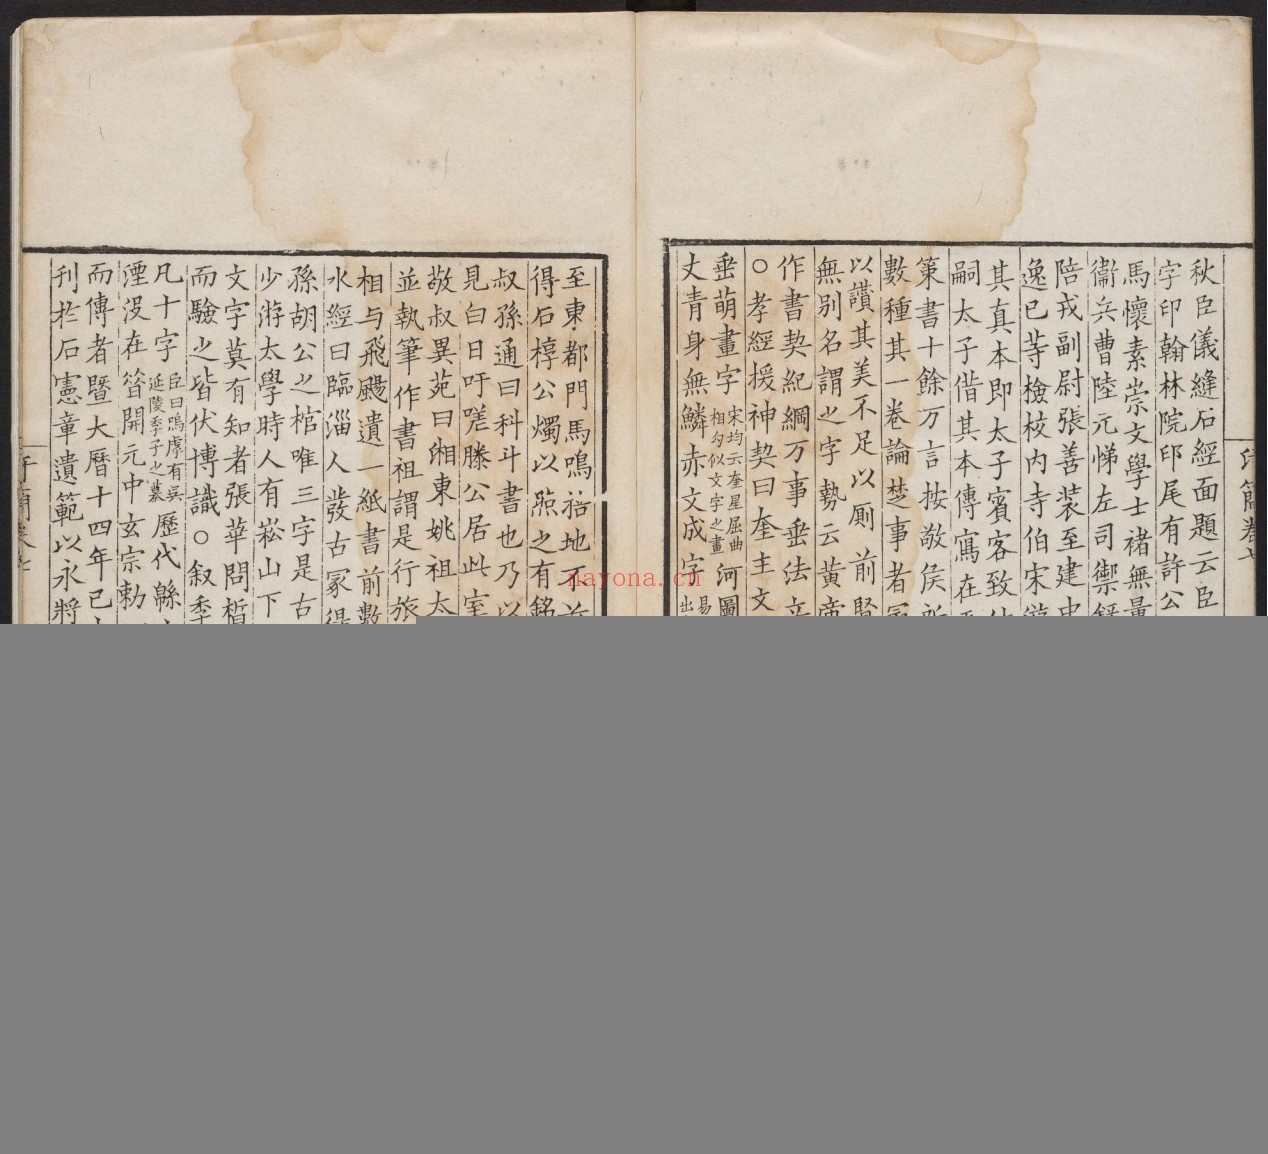 秋臣儀縫石經面題云臣
字印翰林院印尾有許公
馬懷素崇文學士褚無量
衞兵曹陸元悌左司禦
陪戎副尉張善裝至建中
逸已等檢校内寺伯宋游
其真本即太子賓客致
嗣太子借其本傳寫在
策書十餘万言按敬侯所
數種其一卷論楚事者
以讃其美不足以厠前賢
無别名謂之字勢云黄帝
作書契紀綱万事垂法立
○孝經援神契曰奎主文
垂萌畫字宋均云奎星屈曲相勾似文字之畫河圖
丈青身無鱗赤文成字出易
至東都門馬鳴䠧地不
得石椁公燭以照之有銘
叔孫通曰科斗書也乃以
見白日吁嗟滕公居此室
敬叔異苑曰湘東姚祖太
並執筆作書祖謂是行旅
相与飛颺遺一紙書前數
水經曰臨淄人發古冢得
孫胡公之棺唯三字是古
少游太學時人有嵩山下
文字莫有知者張華問晳
而驗之皆伏博識○叙季
凡十字臣曰嗚虖有吳延陵季子之墓歷代緜
湮没在昔開元中玄宗勅
而傳者暨大曆十四年己
刊於石憲章遺範以永將
nayona.cn